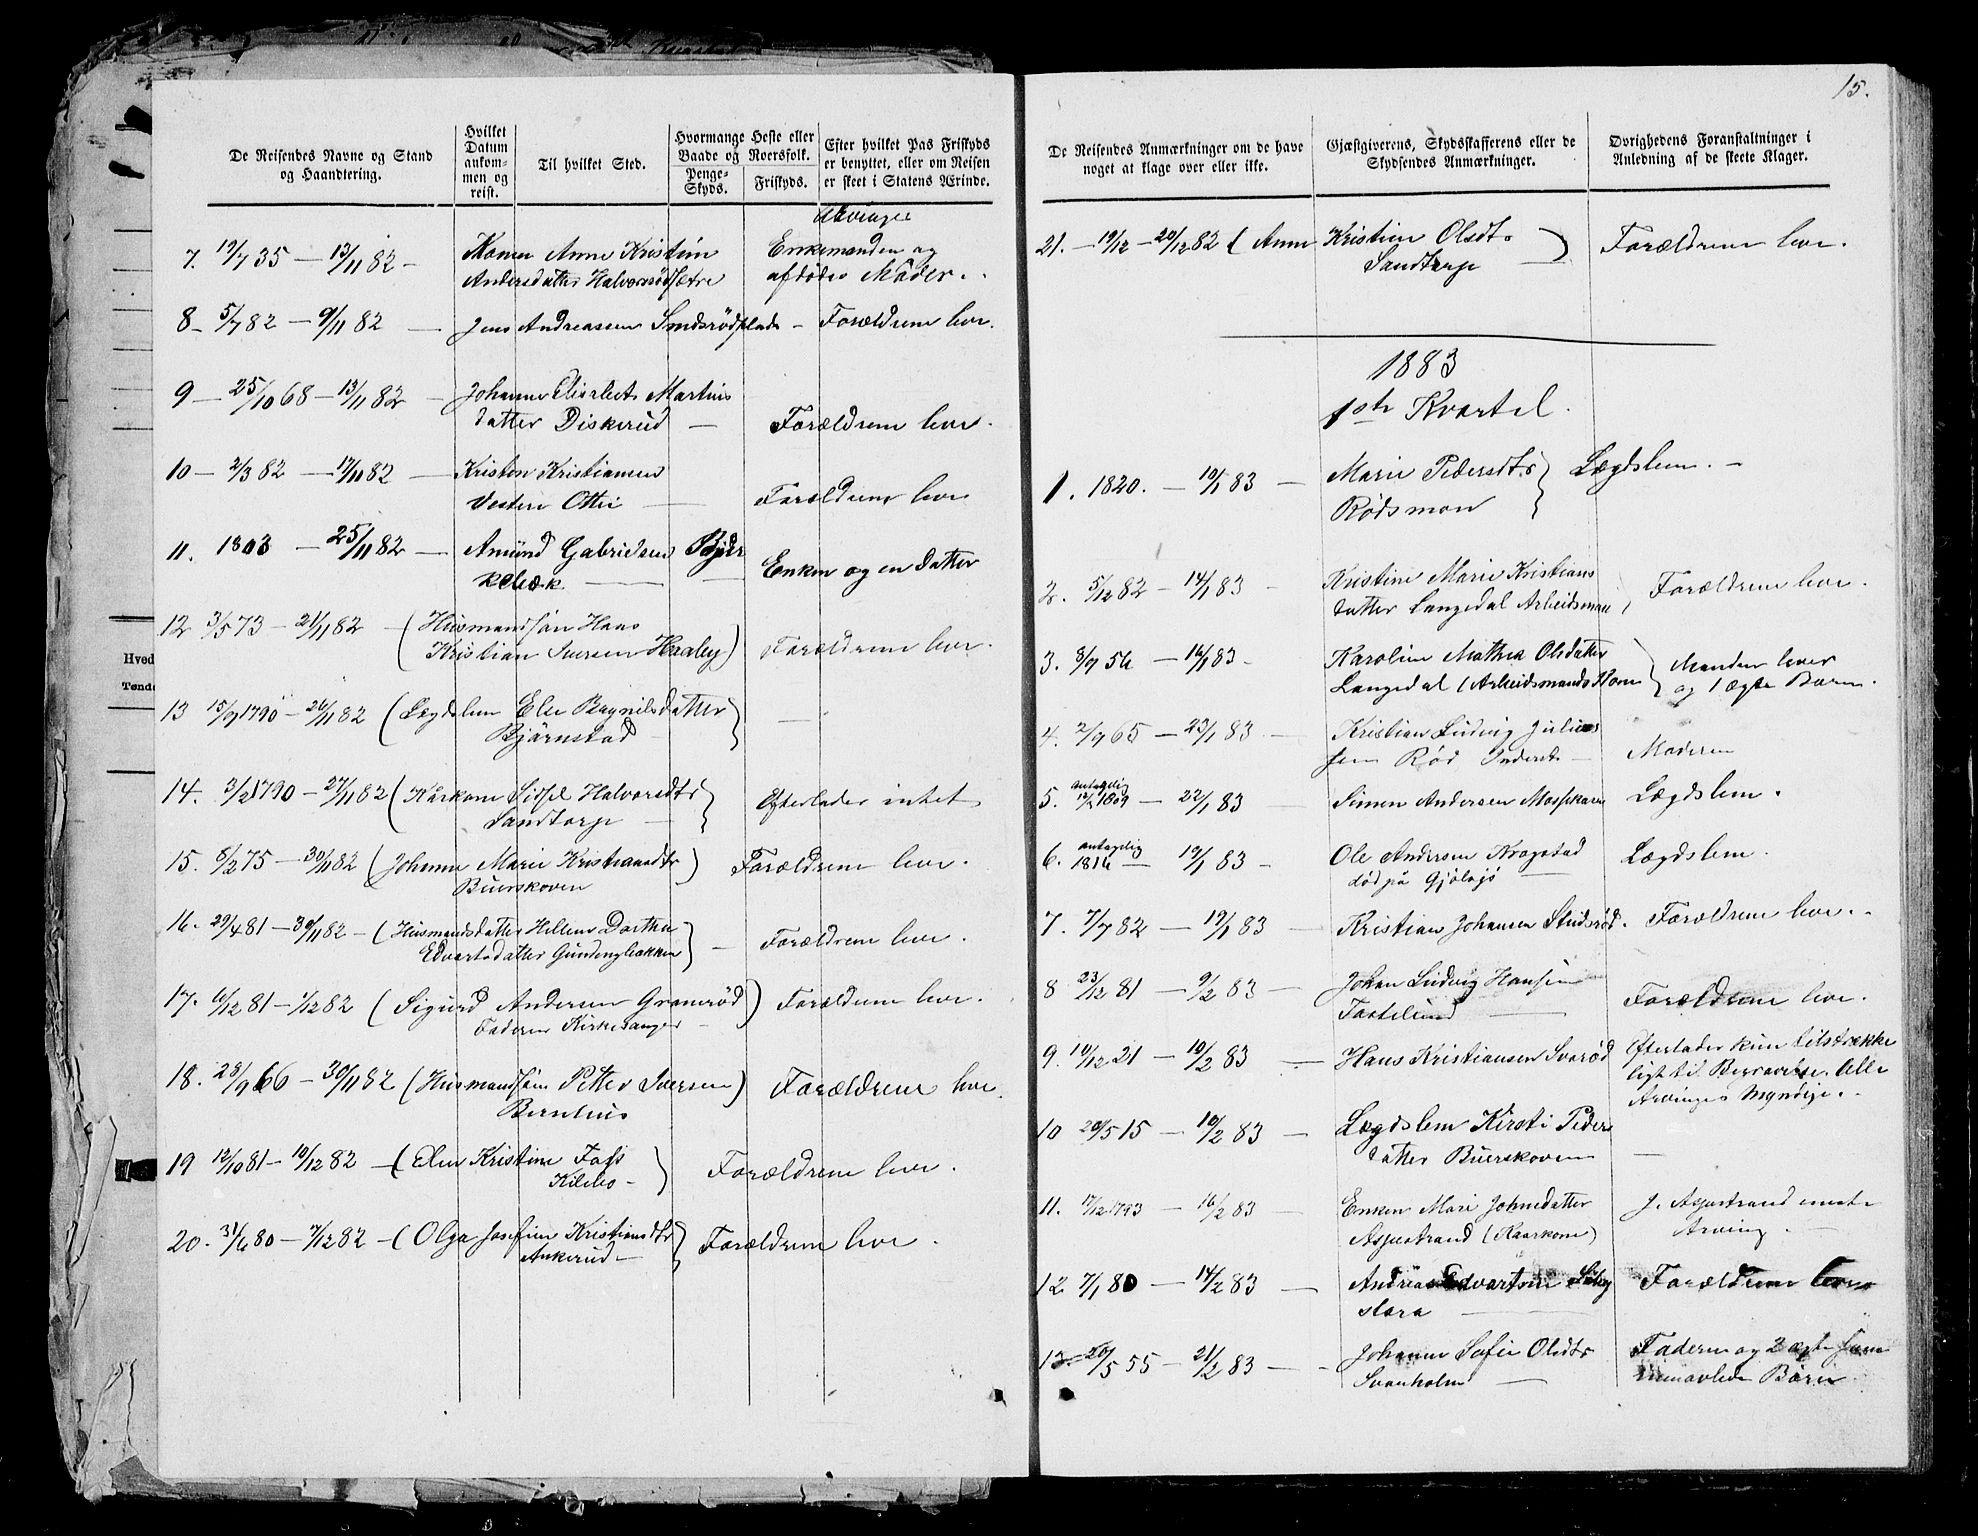 De Reisendes Navne og Stand
og Haandtering.
Hvilket
Datum
ankom-
men og
reist.
Til hvilket Sted.
Hvormange Heste eller
Baade og Roersfolk.
Penge-
Skyds.
Friskyds.
Efter hvilket Pas Friskyds
er benyttet, eller om Reisen
er skeet i Statens Ærinde.
Arvinger
7. 19/7 35 — 13/11 82 - Konen Anne Kristine Enkemanden og
Andersdatter Halvorsrødsætre afdødes Moder.
8 - 5/7 82 — 9/11 82 — Jens Andreassen Smdsrødplads - Forældrene lever.
9 — 25/10 68 - 13/11 82 — Johanne Elisebet Martins
datter Diskerud — Forældrene lever.
10 — 2/3 82 — 17/11 82 — Kristen Kristiansen
Vestre Otter — Forældrene lever
11. 1803 — 25/11 82 — Amund Gabrielsen Bjør
kebæk — Enken og en datter
12 3/5 73 — 21/11 82 - (Husmandsøn Hans
Kristian Iversen Haaby) Forældrene lever.
13 15/9 1790 - 26/11 82 (Lægdslem Else Bagnilsdatter
Bjørnstad —
14. 3/2 1790 - 27/11 82 (Kårkone Sissel Halvorsdtr
Sandtorp — Efterlader intet
15. 8/2 75 — 30/11 82 (Johanne Marie Kristiansdtr) Forældrene lever.
Buerskoven
16. 29/4 81 — 30/11 82 - (Husmandsdatter Hellene Dorthea
Edvartsdatter Gundengbakken) — Forældrene lever.
17. 6/12 81 - 1/12 82 (Sigurd Andersen Granerød) Forældrene lever.
Faderen Kirkesanger —
18. 28/9 66 — 30/11 82 (Husmandsøn Petter Iversen) Forældrene lever.
Bernhus
19 12/10 81 - 10/12 82 — (Elen Kristine Foss
Kilebo - ) Forældrene lever.
20. 31/6 80 - 7/12 82 - (Olga Josefine Kristiansdtr
Ankerud - } Forældrene lever.
Hved
Tønde
15.
De Reisendes Anmærkninger om de have
noget at klage over eller ikke.
Gjæstgiverens, Skydsskafferens eller de
Skydsendes Anmærkninger.
Øvrighedens Foranstaltninger i
Anledning af de skeete Klager.
21. — 19/12 — 20/12 82 (Anne Kristine Olsdtr
Sandtorp — ) Forældrene lever.
1883
1ste Kvartal.
1. 1820. — 10/1 83 — Marie Pedersdtr } Lægdslem. —
Rødsmon
2. 5/12 82 — 14/1 83 — Kristine Marie Kristians
datter Langedal Arbeidsman) Forældrene lever.
3. 8/9 56 — 16/1 83 - Karoline Mathea Olsdatter
Langedal (Arbeidsmands Kone } Manden lever
og 1 ægte Barn.
4. 2/9 65 — 23/1 83 — Kristian Ludvig Julius
sen Rød Inderst — Moderen
5. antagelig 12/2 1809 — 22/1 83 Simen Andersen Mosskaren Lægdslem.
6. antagelig 1816 — 19/1 83 — Ole Andersen Kragstad Lægdslem.
død på Gjølsjø —
7. 7/7 82 — 19/1 83 — Kristian Johansen Studsrød. Forældrene lever.
8 23/12 81 — 9/2 83 — Johan Ludvig Hansen
Fastelund — Forældrene lever.
9. 10/12 21 — 10/2 83 — Hans Kristiansen Svarød Efterlader kun tilstrække
ligt til Begravelse. Alle
Arvinger Myndige.
10 20/5 15 — 10/2 83 — Lægdslem Kirsti Peders
datter Buerskoven —
11. 17/12 1793 — 16/2 83 — Enken Mari Johnsdatter J. Aspestrand eneste
Aspestrand (Kaarkone) Arving.
12 7/1 80 — 14/2 83 — Andreas Edvartsen
slora — Forældrene lever
13. 20/5 55 — 21/2 83 — Johanne Sofie Olsdtr Faderen og 2 ægte sam
Svanholm — menavlede Børn